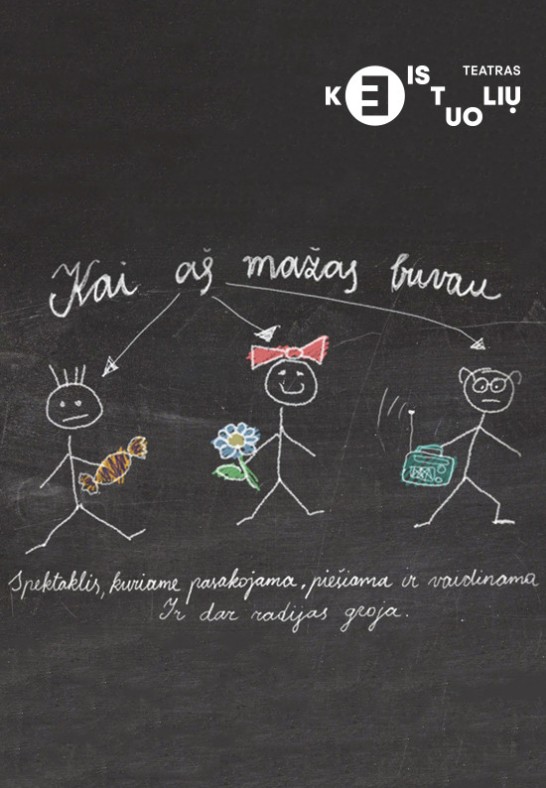 KEISTUOLIŲ TEATRAS
Kai aš mažas buvau
Spektaklis, kuriame pasakojama, piešiama ir vaidinama
Ir dar radijas groja.